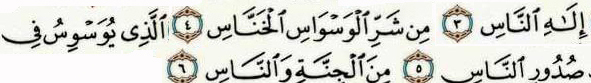 إِلَٰهِ النَّاسِ ٣ مِن شَرِّ الْوَسْوَاسِ الْخَنَّاسِ ٤ الَّذِي يُوَسْوِسُ فِي
صُدُورِ النَّاسِ ٥ مِنَ الْجِنَّةِ وَالنَّاسِ ٦